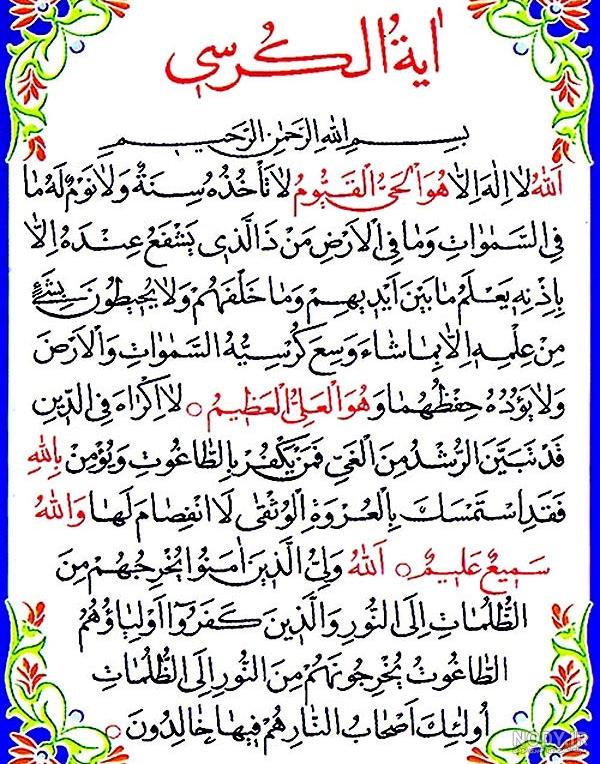 اٰیةُ الْکُرسي
بِسْمِ اللهِ الرَّحْمٰنِ الرَّحيمِ
اَللهُ لا اِلٰهَ اِلاّٰ هُوَ الْحَيُّ الْقَيُّومُ لاٰ تَأْخُذُهُ سِنَةٌ وَلاٰ نَوْمٌ لَهُ مٰا
فِي السَّمٰوٰاتِ وَمٰا فِي الْاَرْضِ مَنْ ذَا الَّذي يَشْفَعُ عِنْدَهُ اِلاّٰ
بِاِذْنِهِ يَعْلَمُ مٰا بَيْنَ اَيْديهِمْ وَمٰا خَلْفَهُمْ وَلاٰ يُحيطُونَ بِشَيْءٍ
مِنْ عِلْمِهِ اِلاّٰ بِمٰا شٰاءَ وَسِعَ كُرْسِيُّهُ السَّمٰوٰاتِ وَالْاَرْضَ
وَلاٰ يَؤُدُهُ حِفْظُهُمٰا وَهُوَ الْعَلِيُّ الْعَظيمُ ○ لاٰ اِكْرٰاهَ فِي الدّينِ
قَدْ تَبَيَّنَ الرُّشْدُ مِنَ الْغَيِّ فَمَنْ يَكْفُرْ بِالطّٰاغُوتِ وَيُؤْمِنْ بِاللهِ
فَقَدِ اسْتَمْسَكَ بِالْعُرْوَةِ الْوُثْقىٰ لَا انْفِصٰامَ لَهٰا وَاللهُ
سَميعٌ عَليمٌ ○ اَللهُ وَلِيُّ الَّذينَ اٰمَنُوا يُخْرِجُهُمْ مِنَ
الظُّلُمٰاتِ اِلَى النُّورِ وَالَّذينَ كَفَرُوا اَوْلِيٰاؤُهُمُ
الطّٰاغُوتُ يُخْرِجُونَهُمْ مِنَ النُّورِ اِلَى الظُّلُمٰاتِ
اُولٰئِكَ اَصْحٰابُ النّٰارِ هُمْ فيهٰا خٰالِدُونَ ○